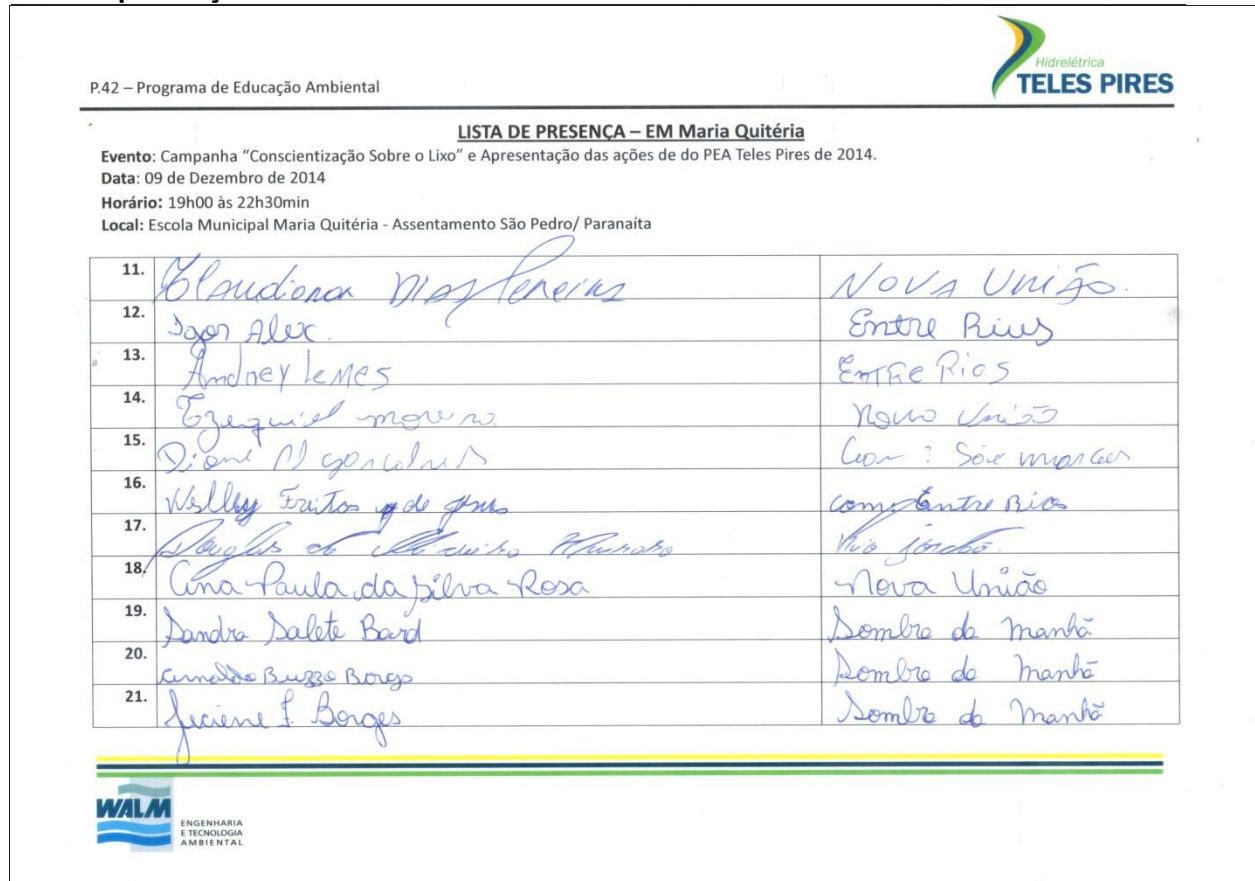 Hidrelétrica
TELES PIRES
P.42 – Programa de Educação Ambiental
LISTA DE PRESENÇA – EM Maria Quitéria
Evento: Campanha "Conscientização Sobre o Lixo" e Apresentação das ações de do PEA Teles Pires de 2014.
Data: 09 de Dezembro de 2014
Horário: 19h00 às 22h30min
Local: Escola Municipal Maria Quitéria - Assentamento São Pedro/ Paranaíta
11. Dias Pereira NOVA UNIÃO.
12. Igor Alex. Entre Rius
13. Andrey Lemes EntRe Rios
14. Ezequiel União
15. Diane
16. Freitas de Entre Rios
17. Douglas
18. Ana Paula da Silva Rosa Nova União
19. Sandra Salete Bard Sombra da Manhã
20. Arnaldo Buzzo Borges Sombra da Manhã
21. Borges Sombra da Manhã
WALM
ENGENHARIA
E TECNOLOGIA
AMBIENTAL